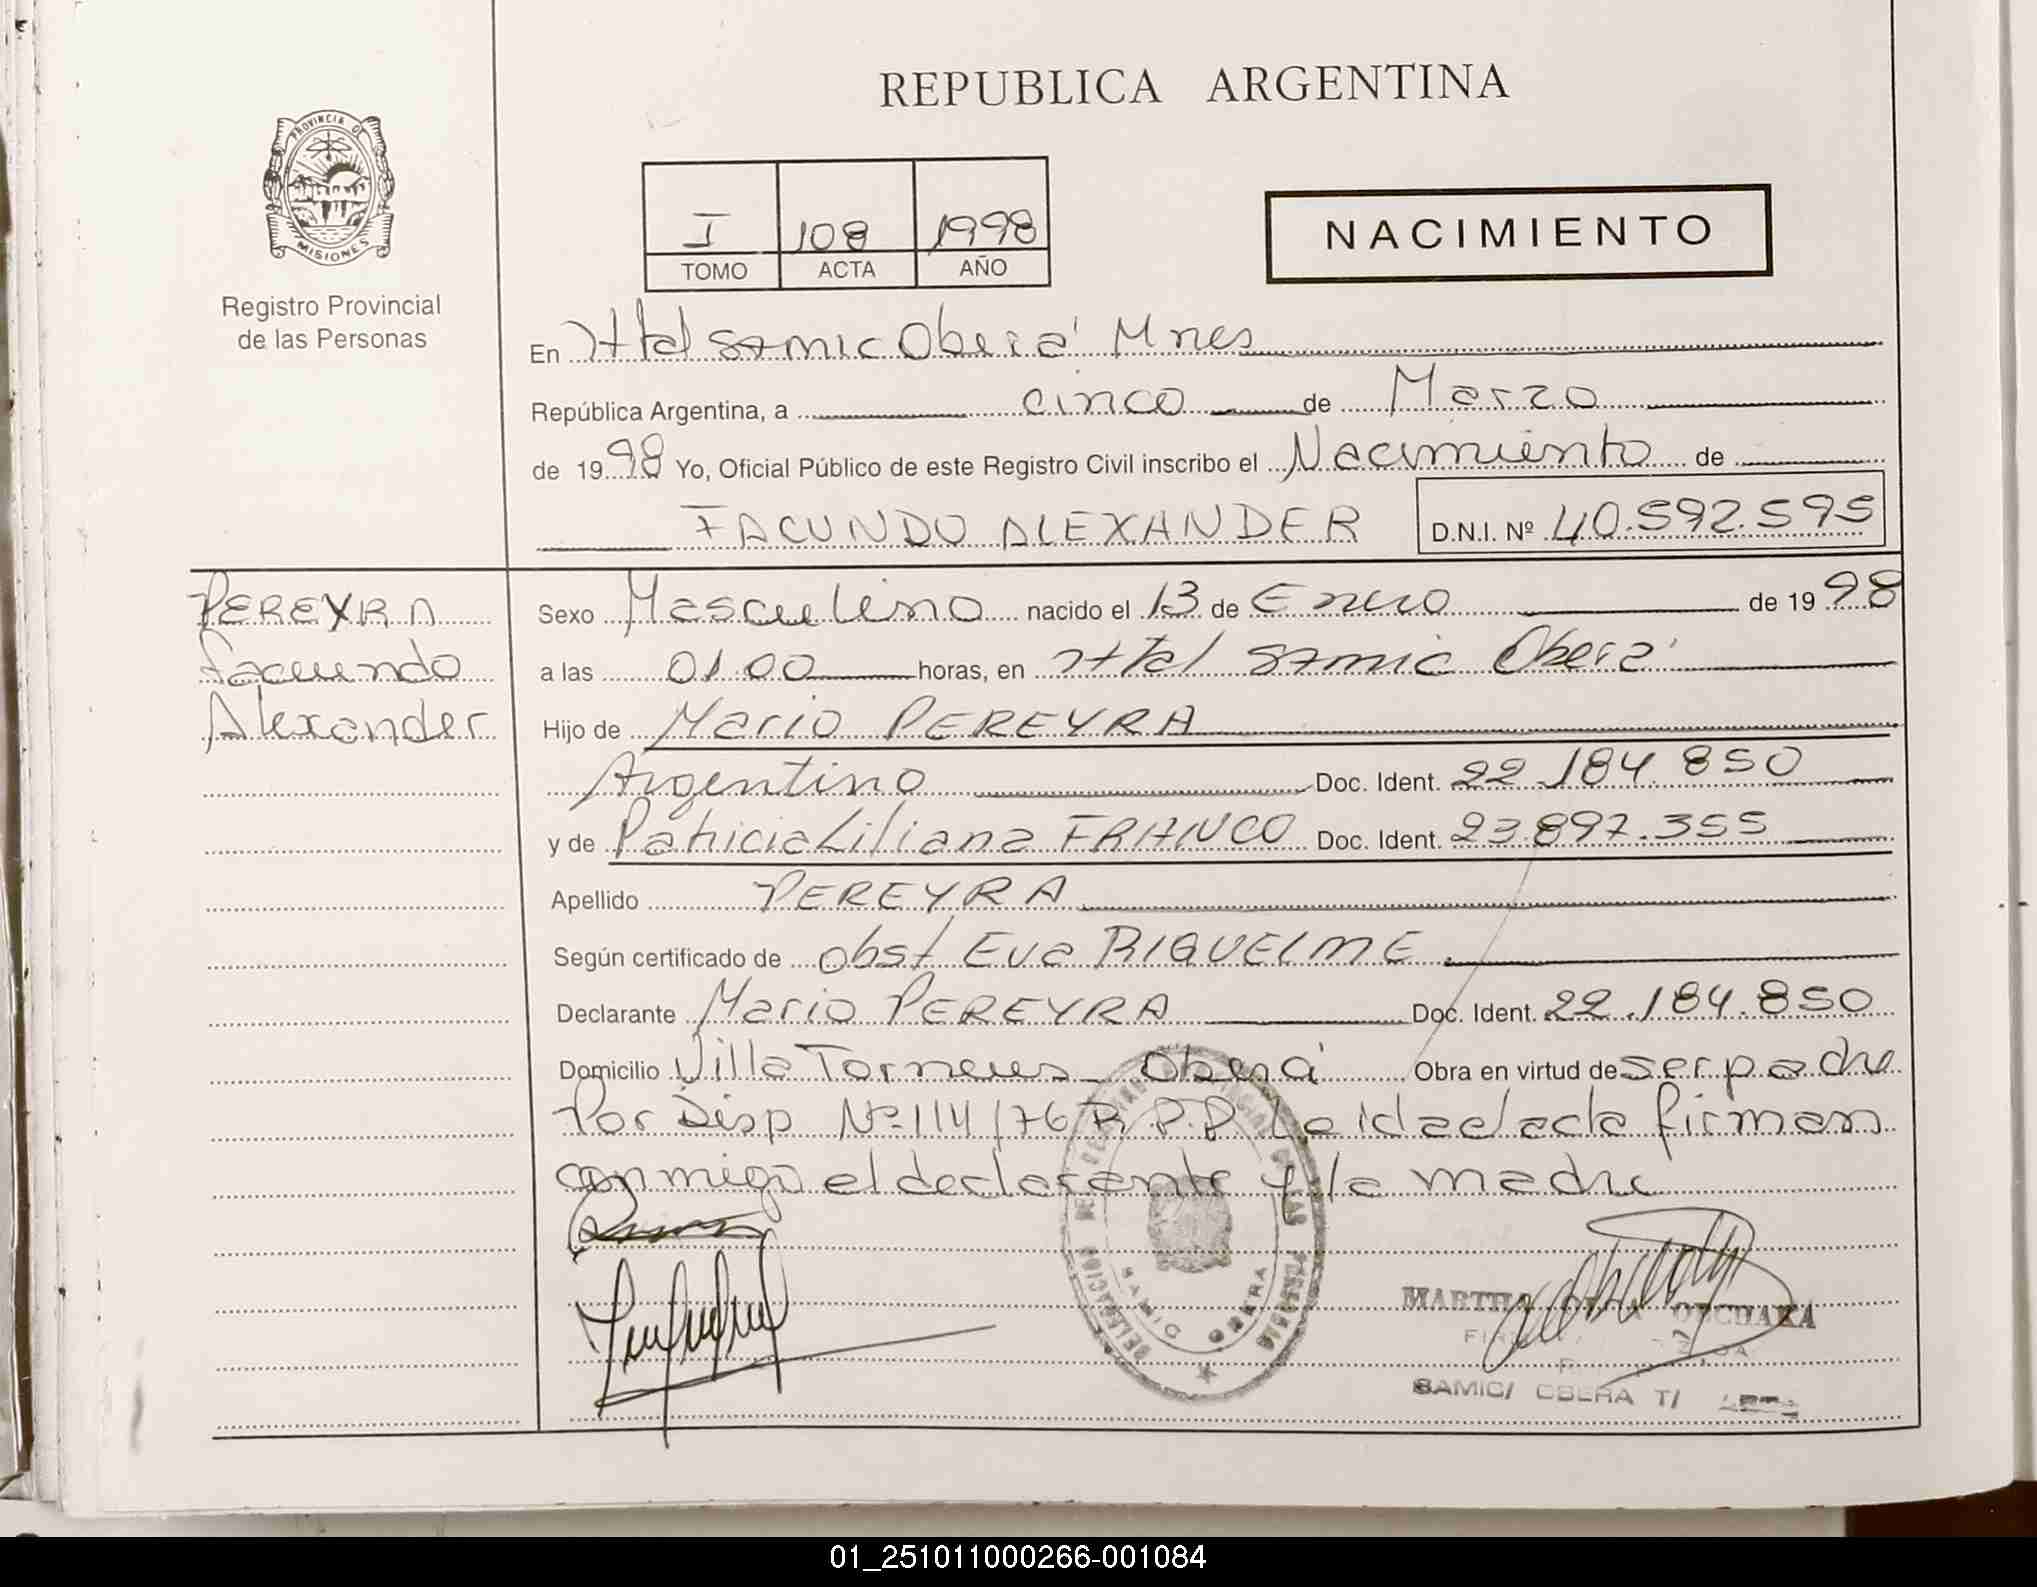 REPUBLICA ARGENTINA
PROVINCIA DE
MISIONES
Registro Provincial
de las Personas
I 108 1998
TOMO ACTA AÑO
NACIMIENTO
En Httal Samic Oberá Mnes
República Argentina, a cinco de Marzo
de 1998 Yo, Oficial Público de este Registro Civil inscribo el Nacimiento de
FACUNDO ALEXANDER D.N.I. Nº 40.592.595
PEREYRA
Facundo
Alexander
Sexo Masculino nacido el 13 de Enero de 1998
a las 01.00 horas, en Httal Samic Oberá
Hijo de Mario PEREYRA
Argentino Doc. Ident. 22.184.850
y de Patricia Liliana FRANCO Doc. Ident. 23.897.355
Apellido PEREYRA
Según certificado de obst Eva RIQUELME
Declarante Mario PEREYRA Doc. Ident. 22.184.850
Domicilio Villa Oberá Obra en virtud de ser padre
Por Disp Nº 114/76 R.P.P. Leida el acta firman
conmigo el declarante y la madre
DELEGACION DE LAS PERSONAS
SAMIC OBERA
MARTHA
SAMIC/ OBERA T/
01_251011000266-001084